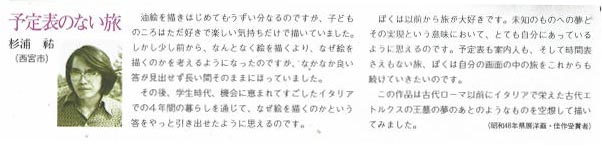 予定表のない旅
杉浦 祐
(西宮市)
油絵を描きはじめてもうずい分なるのですが、子ども
のころはただ好きで楽しい気持ちだけで描いていました。
しかし少し前から、なんとなく絵を描くより、なぜ絵を
描くのかを考えるようになったのですが、なかなか良い
答が見出せず長い間そのままにほっていました。
その後、学生時代、機会に恵まれてすごしたイタリア
での4年間の暮らしを通じて、なぜ絵を描くのかという
答をやっと引き出せたように思えるのです。
ぼくは以前から旅が大好きです。未知のものへの夢ど
その実現という意味において、とても自分にあっている
ように思えるのです。予定表も案内人も、そして時間表
さえもない旅、ぼくは自分の画面の中の旅をこれからも
続けていきたいのです。
この作品は古代ローマ以前にイタリアで栄えた古代エ
トルクスの王墓の夢のあとのようなものを空想して描い
てみました。
(昭和48年県展洋画・佳作受賞者)